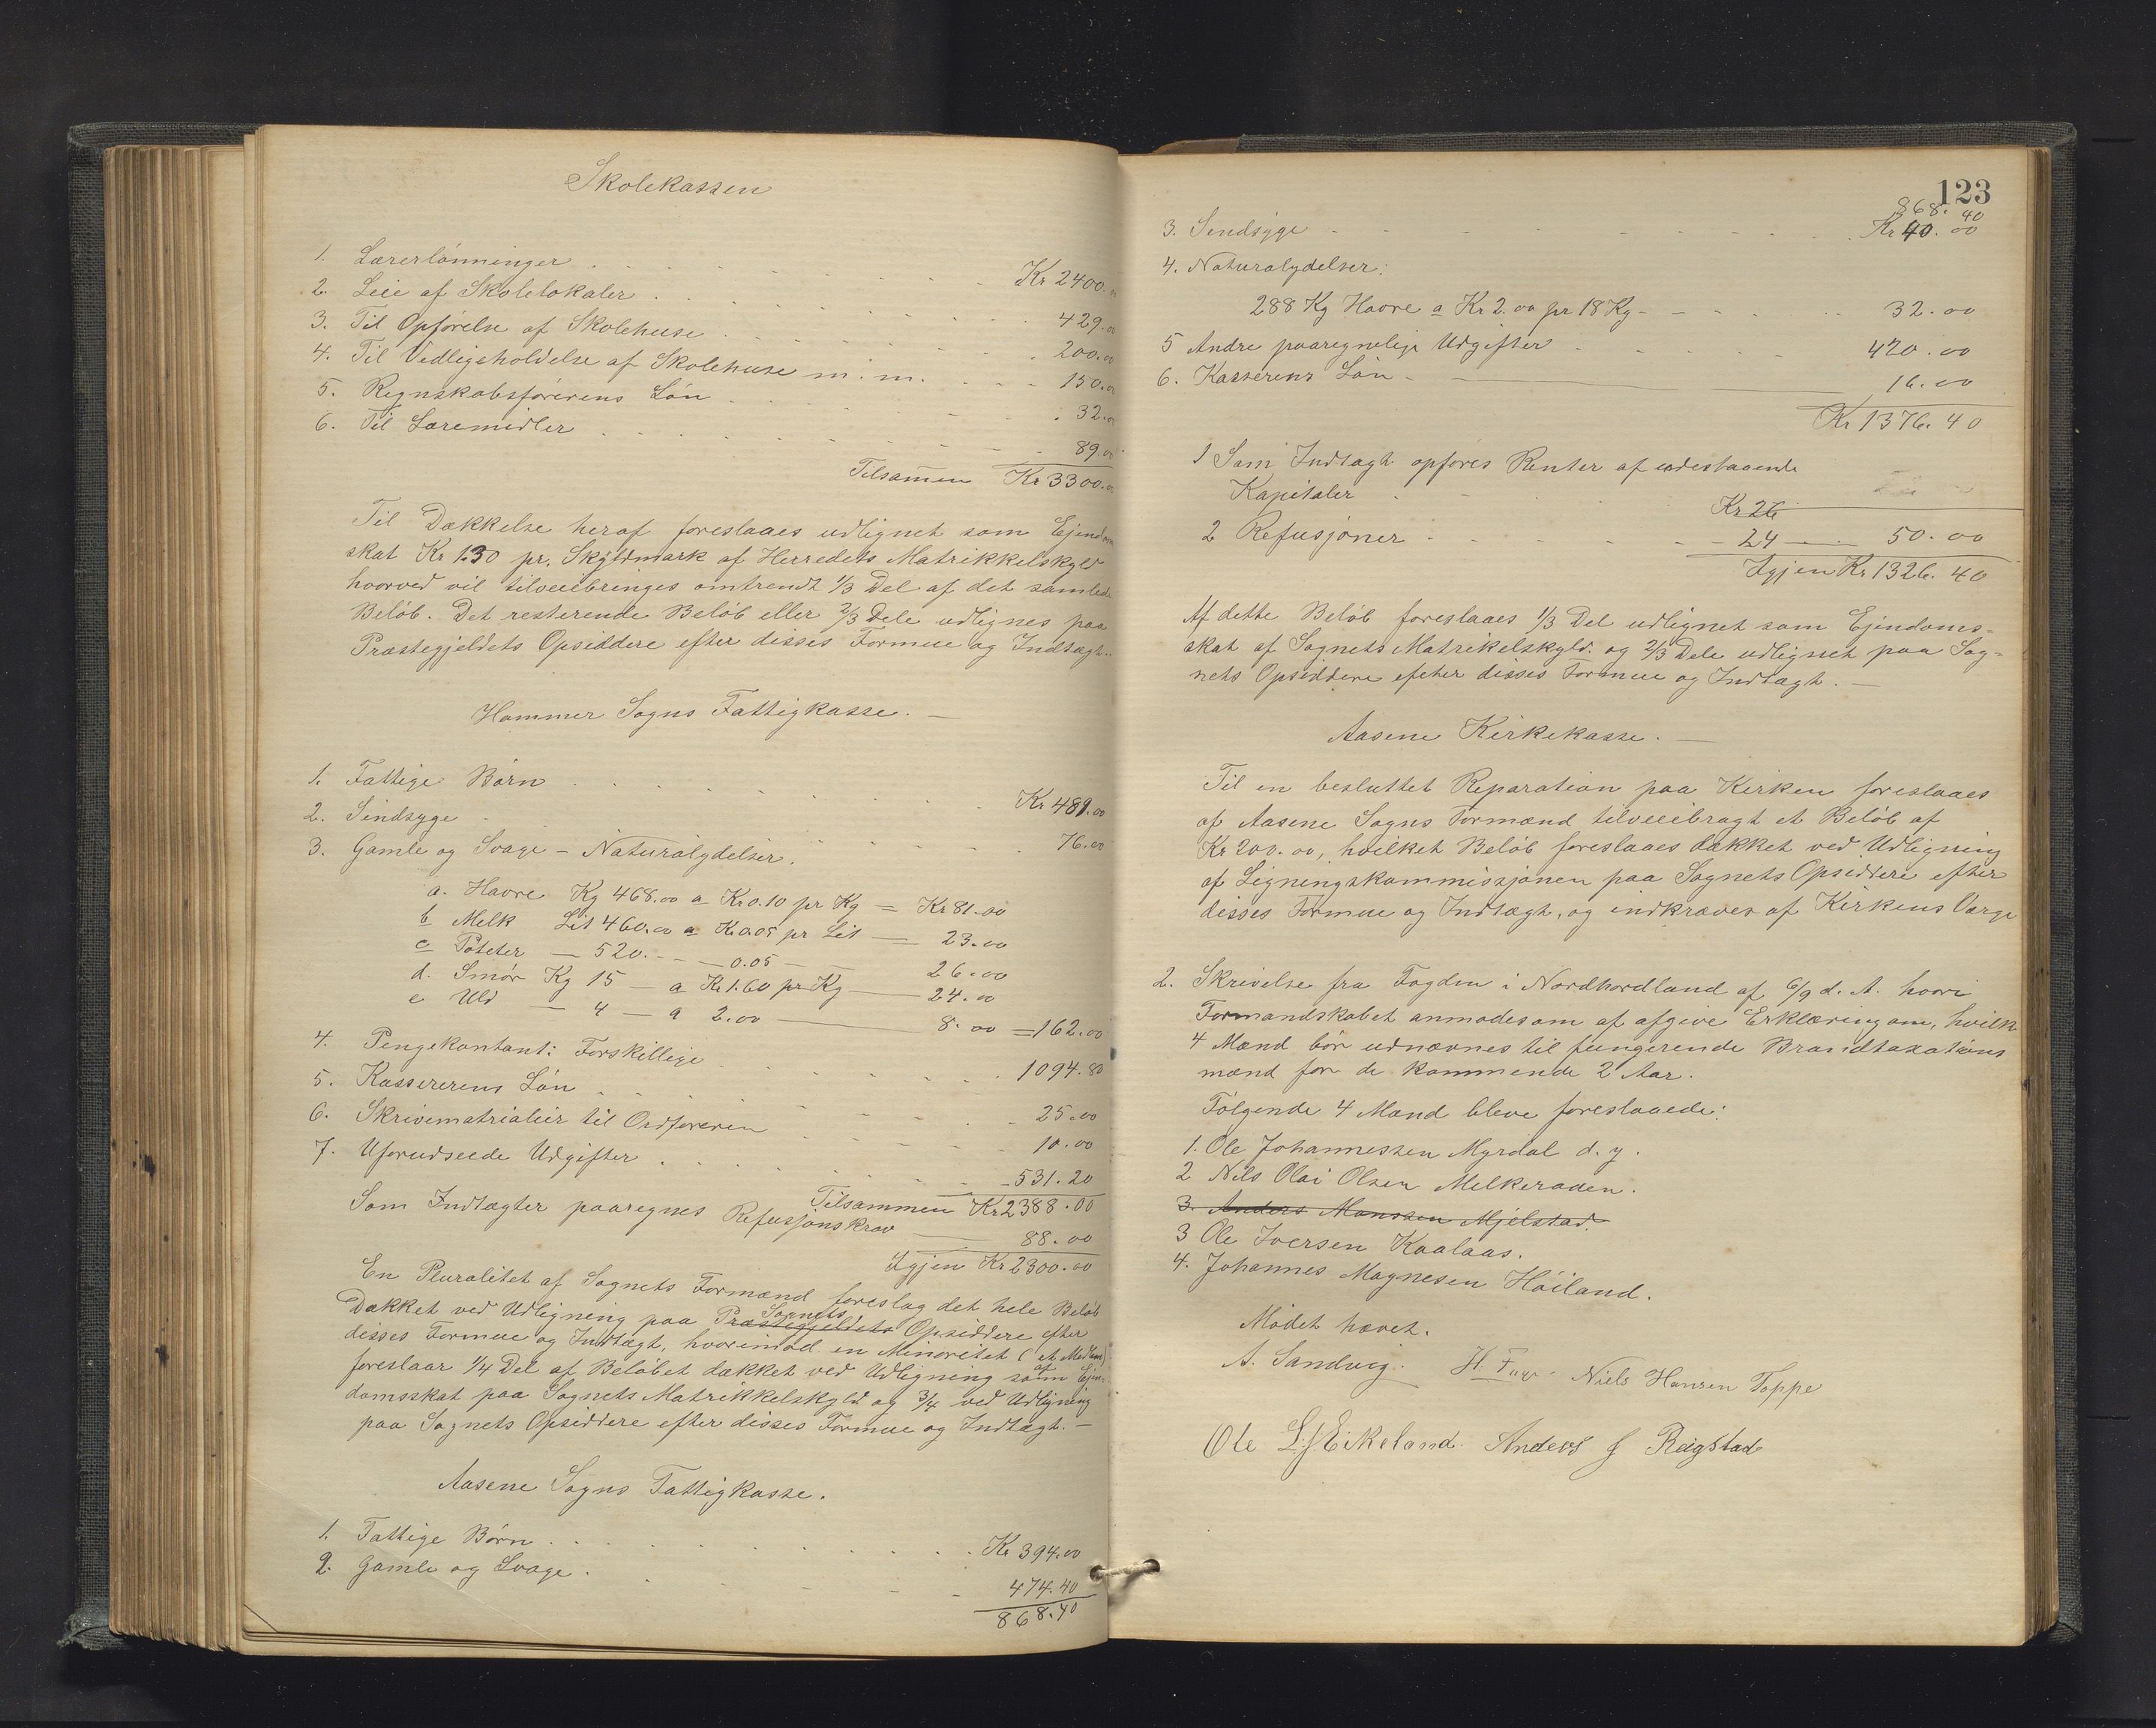 Skolekassen
1. Lærerlønninger . . . Kr 2400.
2. Leie af Skolelokaler . . . 429.00
3. Til Opførelse af Skolehuse . . . 200.00
4. Til Vedligeholdelse af Skolehuse m. m. . . . 150.00
5. Regnskabsførerens Løn . . . 32.00
6. Til Læremidler . . . 89.00
Tilsammen Kr 3300.00
Til Dækkelse heraf foreslaaes udlignet som Ejendoms
skat Kr 1.30 pr. Skyldmark af Herredets Matrikkelskyld
hvorved vil tilveiebringes omtrendt 1/3 Del af det samlede
Beløb. Det resterende Beløb eller 2/3 Dele udlignes paa
Præstegjeldets Opsiddere efter disses Formue og Indtægt.
Hammer Sogns Fattigkasse. —
1. Fattige Børn . . . Kr 481.00
2. Sindsyge . . . 76.00
3. Gamle og Svage – Naturalydelser.
a. Havre Kg 468.00 a Kr 0.10 pr Kg = Kr 81.00
b Melk Lit 460.00 a Kr 0.05 pr Lit — 23.00
c Poteter — 520. — — 0.05 — 26.00
d. Smør Kg 15 — a Kr 1.60 pr Kg — 24.00
e Uld — 4 — a 2.00 — 8.00 = 162.00
4. Pengekontant: Forskillige . . . 1094.80
5. Kassererens Løn . . . 25.00
6. Skrivematrialier til Ordføreren . . . 10.00
7. Uforudseede Udgifter . . . 531.20
Tilsammen Kr 2388.00
Som Indtægter paaregnes Refusjonskrav — 88.00
Igjen Kr 2300.00
En Pluralitet af Sognets Formænd foreslog det hele Beløb
Dækket ved Udligning paa Præstegjeldets Sognets Opsiddere efter
disses Formue og Indtægt, hvorimod en Minoritet (et Medlem)
foreslaar 1/4 Del af Beløbet dækket ved Udligning som af Ejen-
domsskat paa Sognets Matrikkelskyld og 3/4 ved Udligning
paa Sognets Opsiddere efter disses Formue og Indtægt. —
Aasene Sogns Fattigkasse.
1. Fattige Børn . . . Kr 394.00
2. Gamle og Svage . . . 474.40
868.40
123
868.40
3. Sindsyge . . . Kr 40.00
4. Naturalydelser:
288 Kg Havre a Kr 2.00 pr 18 Kg - - - 32.00
5 Andre paaregnelige Udgifter . . . 420.00
6. Kasserens Løn - — 16.00
Kr 1376.40
1 Som Indtægt opføres Renter af udestaaende
Kapitaler . . . Kr 26
2 Refusjoner - - - 24 — 50.00
Igjen Kr 1326.40
Af dette Beløb foreslaaes 1/3 Del udlignet som Ejendoms-
skat af Sognets Matrikelskyld. og 2/3 Dele udlignet paa Sog-
nets Opsiddere efeter disses Formue og Indtægt. —
Aasene Kirkekasse. —
Til en besluttet Reparation paa Kirken foreslaaes
af Aasene Sogns Formænd tilveieibragt et Beløb af
Kr 200.00, hvilket Beløb foreslaaes dækket ved Udligning
af Ligningskommissjonen paa Sognets Opsiddere efter
disses Formue og Indtægt, og indkræves af Kirkens Værge
2. Skrivelse fra Fogden i Nordhordland af 6/9 d. A. hvori
Formandskabet anmodes om at afgive Erklæring om, hvilke
4 Mænd bør udnævnes til fungerende Brandtaxations
mænd for de kommende 2 Aar.
Følgende 4 Mænd bleve foreslaaede:
1. Ole Johannessen Myrdal d. y.
2 Nils Olai Olsen Melkeraaen.
3. Anders Monssen Mjelstad.
3 Ole Iversen Kaalaas.
4. Johannes Magnesen Høiland.
Mødet hævet.
A. Sandvig. H. Niels Hansen Toppe
Ole L. Eikeland. Anders J Reigstad